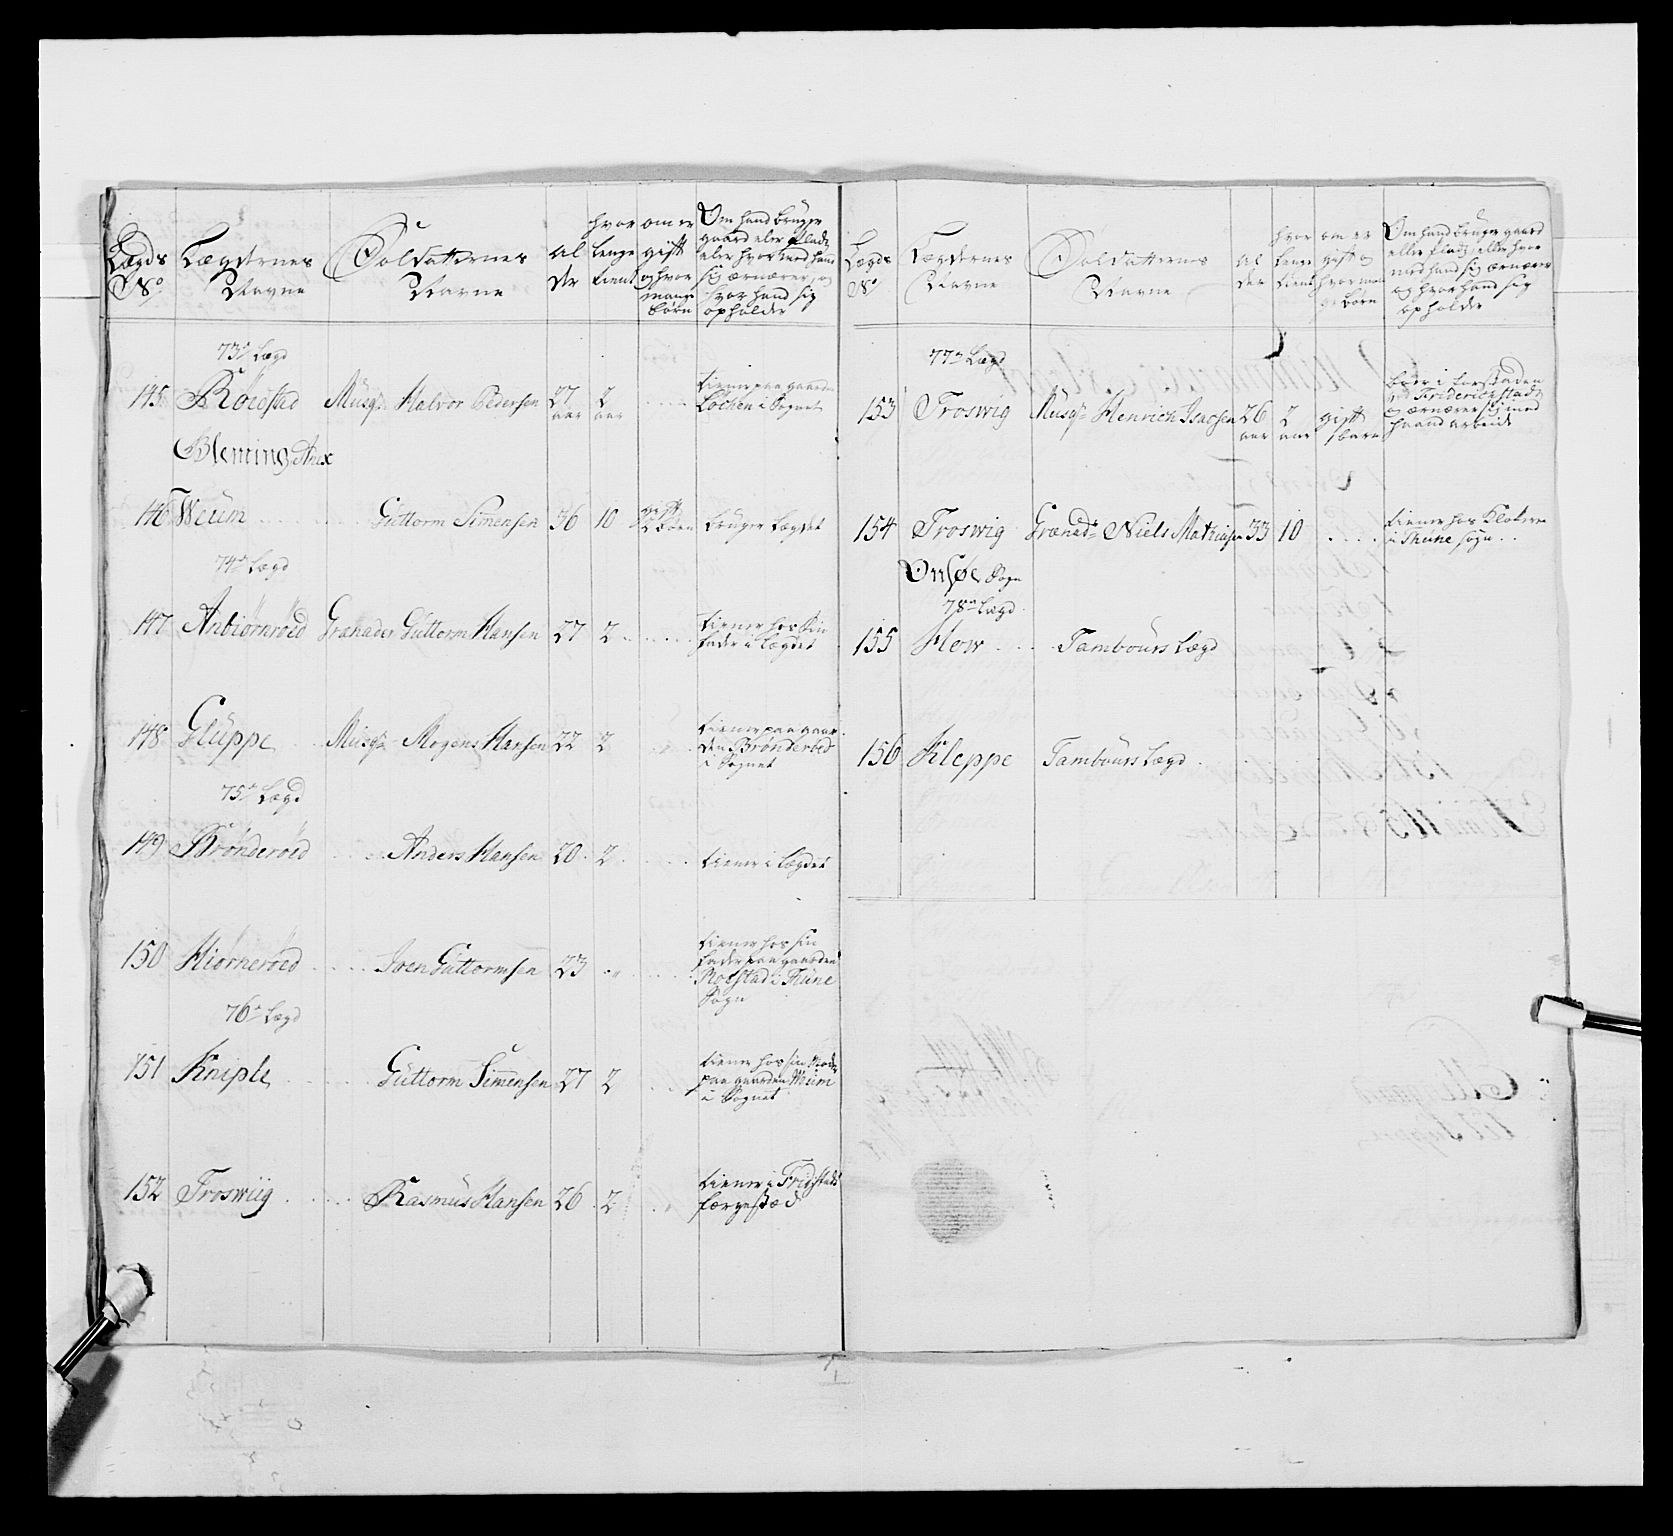 Lægds No
Lægdernes Navne
Soldatternes Navne
Al der
hvor lenge tient
om er gift og hvor mange børn
Om hand bruger gaard eler Pladz eler hvor med hand sig ærnærer, og hvor hand sig opholder
73de Lægd
145 Roedstad Musqr Halvor Pedersen 27 aar 2 aar tiener paa gaarden Løchen i Sognet
Gleming Anex
146 Weum Guttorm Simensen 36 10 gift 2 børn bruger Lægdet
74de Lægd
147 Anbiørnrød Granader Guttorm Hansen 27 2 tiener hos sin fader i Lægdet
148 Gluppe Musqr Mogens Hansen 22 2 tiener paa gaarden Brønderød i Sognet
75de Lægd
149 Brønderød Anders Hansen 20 2 tiener i Lægdet
150 Hiørnerød Joen Guttormsen 23 tiener hos sin fader paa gaarden Roestad i Thune Sogn
76de Lægd
151 Kniple Guttorm Simensen 27 2 tiener hos sin Moder paa gaarden Weum i Sognet
152 Troswiig Rasmus Hansen 26 2 tiener i Fridstads færgestæd
Lægds No
Lægdernes Navne
Soldatternes Navne
Al der
hvor lenge tient
om er gift og hvor mange børn
Om hand bruger gaard eller Pladz eller hvor med hand sig ærnærer og hvor hand sig opholder
77de Lægd
153 Troswig Musqr Henrich Isacsen 26 aar 2 aar gift 1 barn boer i forstaden ved Friderichstad og ærnærer sig med haand arbeide
154 Troswig Granadr Niels Mathisen 33 10 tiener hos Klokeren i Thune sogn
Onsøe Sogn
78de Lægd
155 How Tambours Lægd
156 Kleppe Tambours Lægd